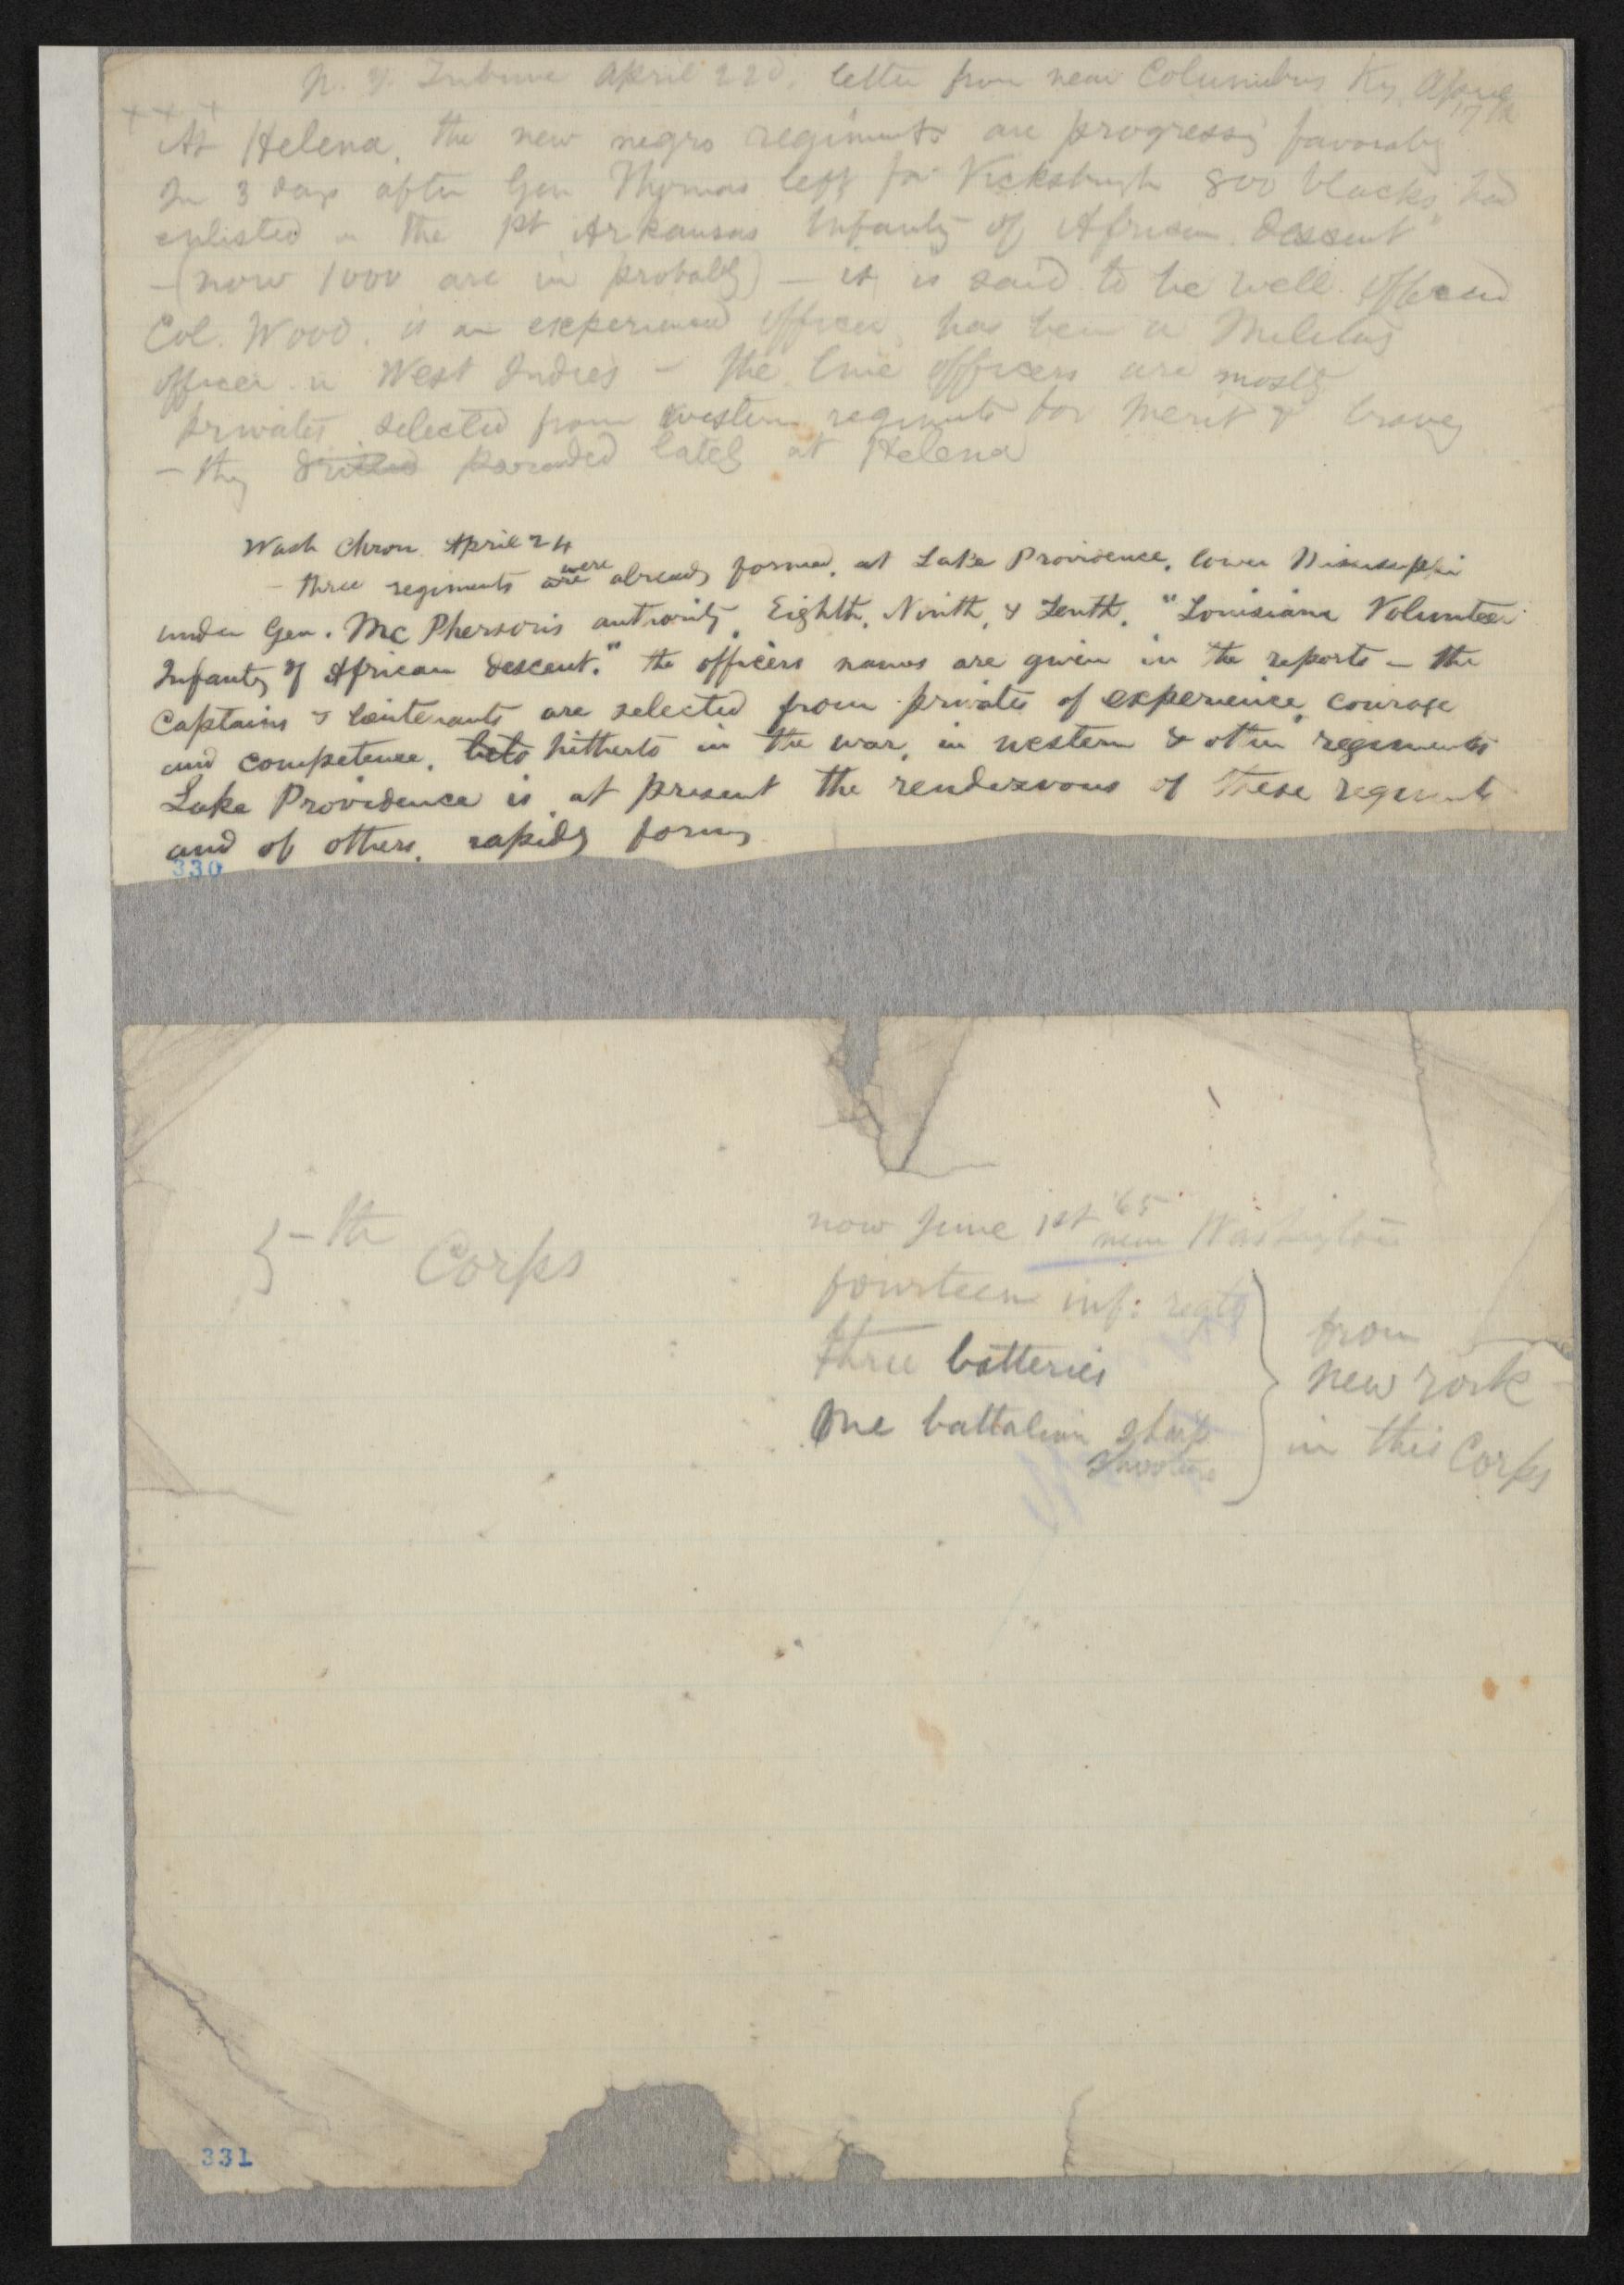 N. Y. Tribune April 22d, letter from near Columbus Ky, April 17th
+ + +
At Helena, the new negro regiments are progressing favorably
In 3 days after Gen Thomas left for Vicksburgh 800 blacks had
enlisted in the 1st Arkansas Infantry of African descent"
— (now 1000 are in probably) — it is said to be well officered
Col. Wood, is an experienced officer, has been a Military
officer in West Indies — The line officers are mostly
privates selected from western regiments for merit & bravery
— they drilled paraded lately at Helena
Wash Chron. April 24
— three regiments are were already formed, at Lake Providence, lower Mississippi
under Gen. McPherson's authority, Eighth, Ninth, & Tenth, "Louisiana Volunteer
Infantry of African descent." the officers names are given in the reports — the
captains & lieutenants are selected from privates of experience, courage
and competence, hitherto in the war, in western & other regiments
Lake Providence is at present the rendezvous of these regiments
and of others, rapidly forming
330
5th Corps
now June 1st '65 near Washington
fourteen inf: regts
three batteries
One battalion sharp
shooters
from
New York
in this Corps
331